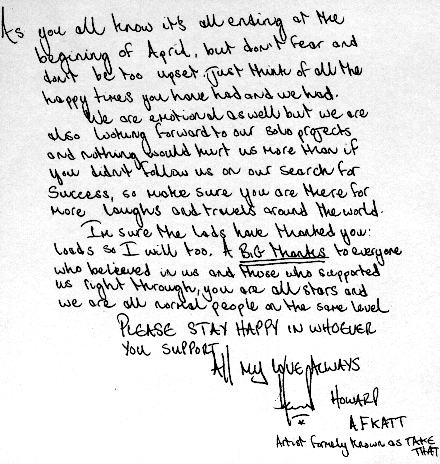 As you all know it's all ending at the
begining of April, but don't fear and
don't be too upset, just think of all the
happy times you have had and we had.
We are emotional aswell but we are
also looking forward to our solo projects
and nothing would hurt us more than if
you didn't follow us on our search for
success, so make sure you are there for
more laughs and travels around the world.
I'm sure the Lads have thanked you
loads so I will too. A BIG thanks to everyone
who believed in us and those who supported
us right through, you are all stars and
we are all normal people on the same level
PLEASE STAY HAPPY IN WHOEVER
YOU SUPPORT
All MY LOVE ALWAYS
HOWARD
A F K A T T
Artist formely known as TAKE
THAT